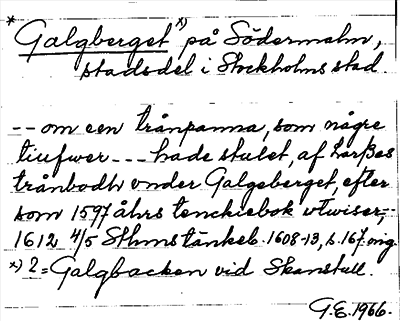 * Galgberget x) på Södermalm,
stadsdel i Stockholms stad
-- om een trånpanna, som någre
tiufwer --- hade stulet, af Larßes
trånbodh vnder Galgeberget, efter
som 1597 åhrs tenckiebok vtwiser,-
1612 4/5 Sthms tänkeb. 1608-13, s. 167. orig.
x) ? = Galgbacken vid Skanstull.
G.E. 1966.